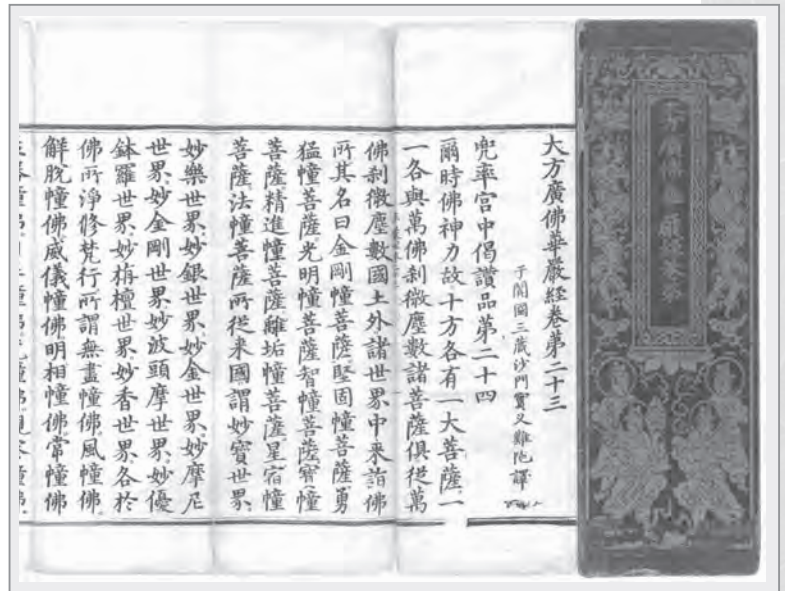 大方廣佛華嚴經卷第二十三
于闐國三藏沙門實叉難陀譯
兜率宮中偈讚品第二十四
爾時佛神力故十方各有一大菩薩一
一各與萬佛剎微塵數諸菩薩俱從萬
佛剎微塵數國土外諸世界中來詣佛
所其名曰金剛幢菩薩堅固幢菩薩勇
猛幢菩薩光明幢菩薩智幢菩薩寶幢
菩薩精進幢菩薩離垢幢菩薩星宿幢
菩薩法幢菩薩所從來國謂妙寶世界
妙樂世界妙銀世界妙金世界妙摩尼
世界妙金剛世界妙波頭摩世界妙優
鉢羅世界妙栴檀世界妙香世界各於
佛所淨修梵行所謂無盡幢佛風幢佛
解脫幢佛威儀幢佛明相幢佛常幢佛